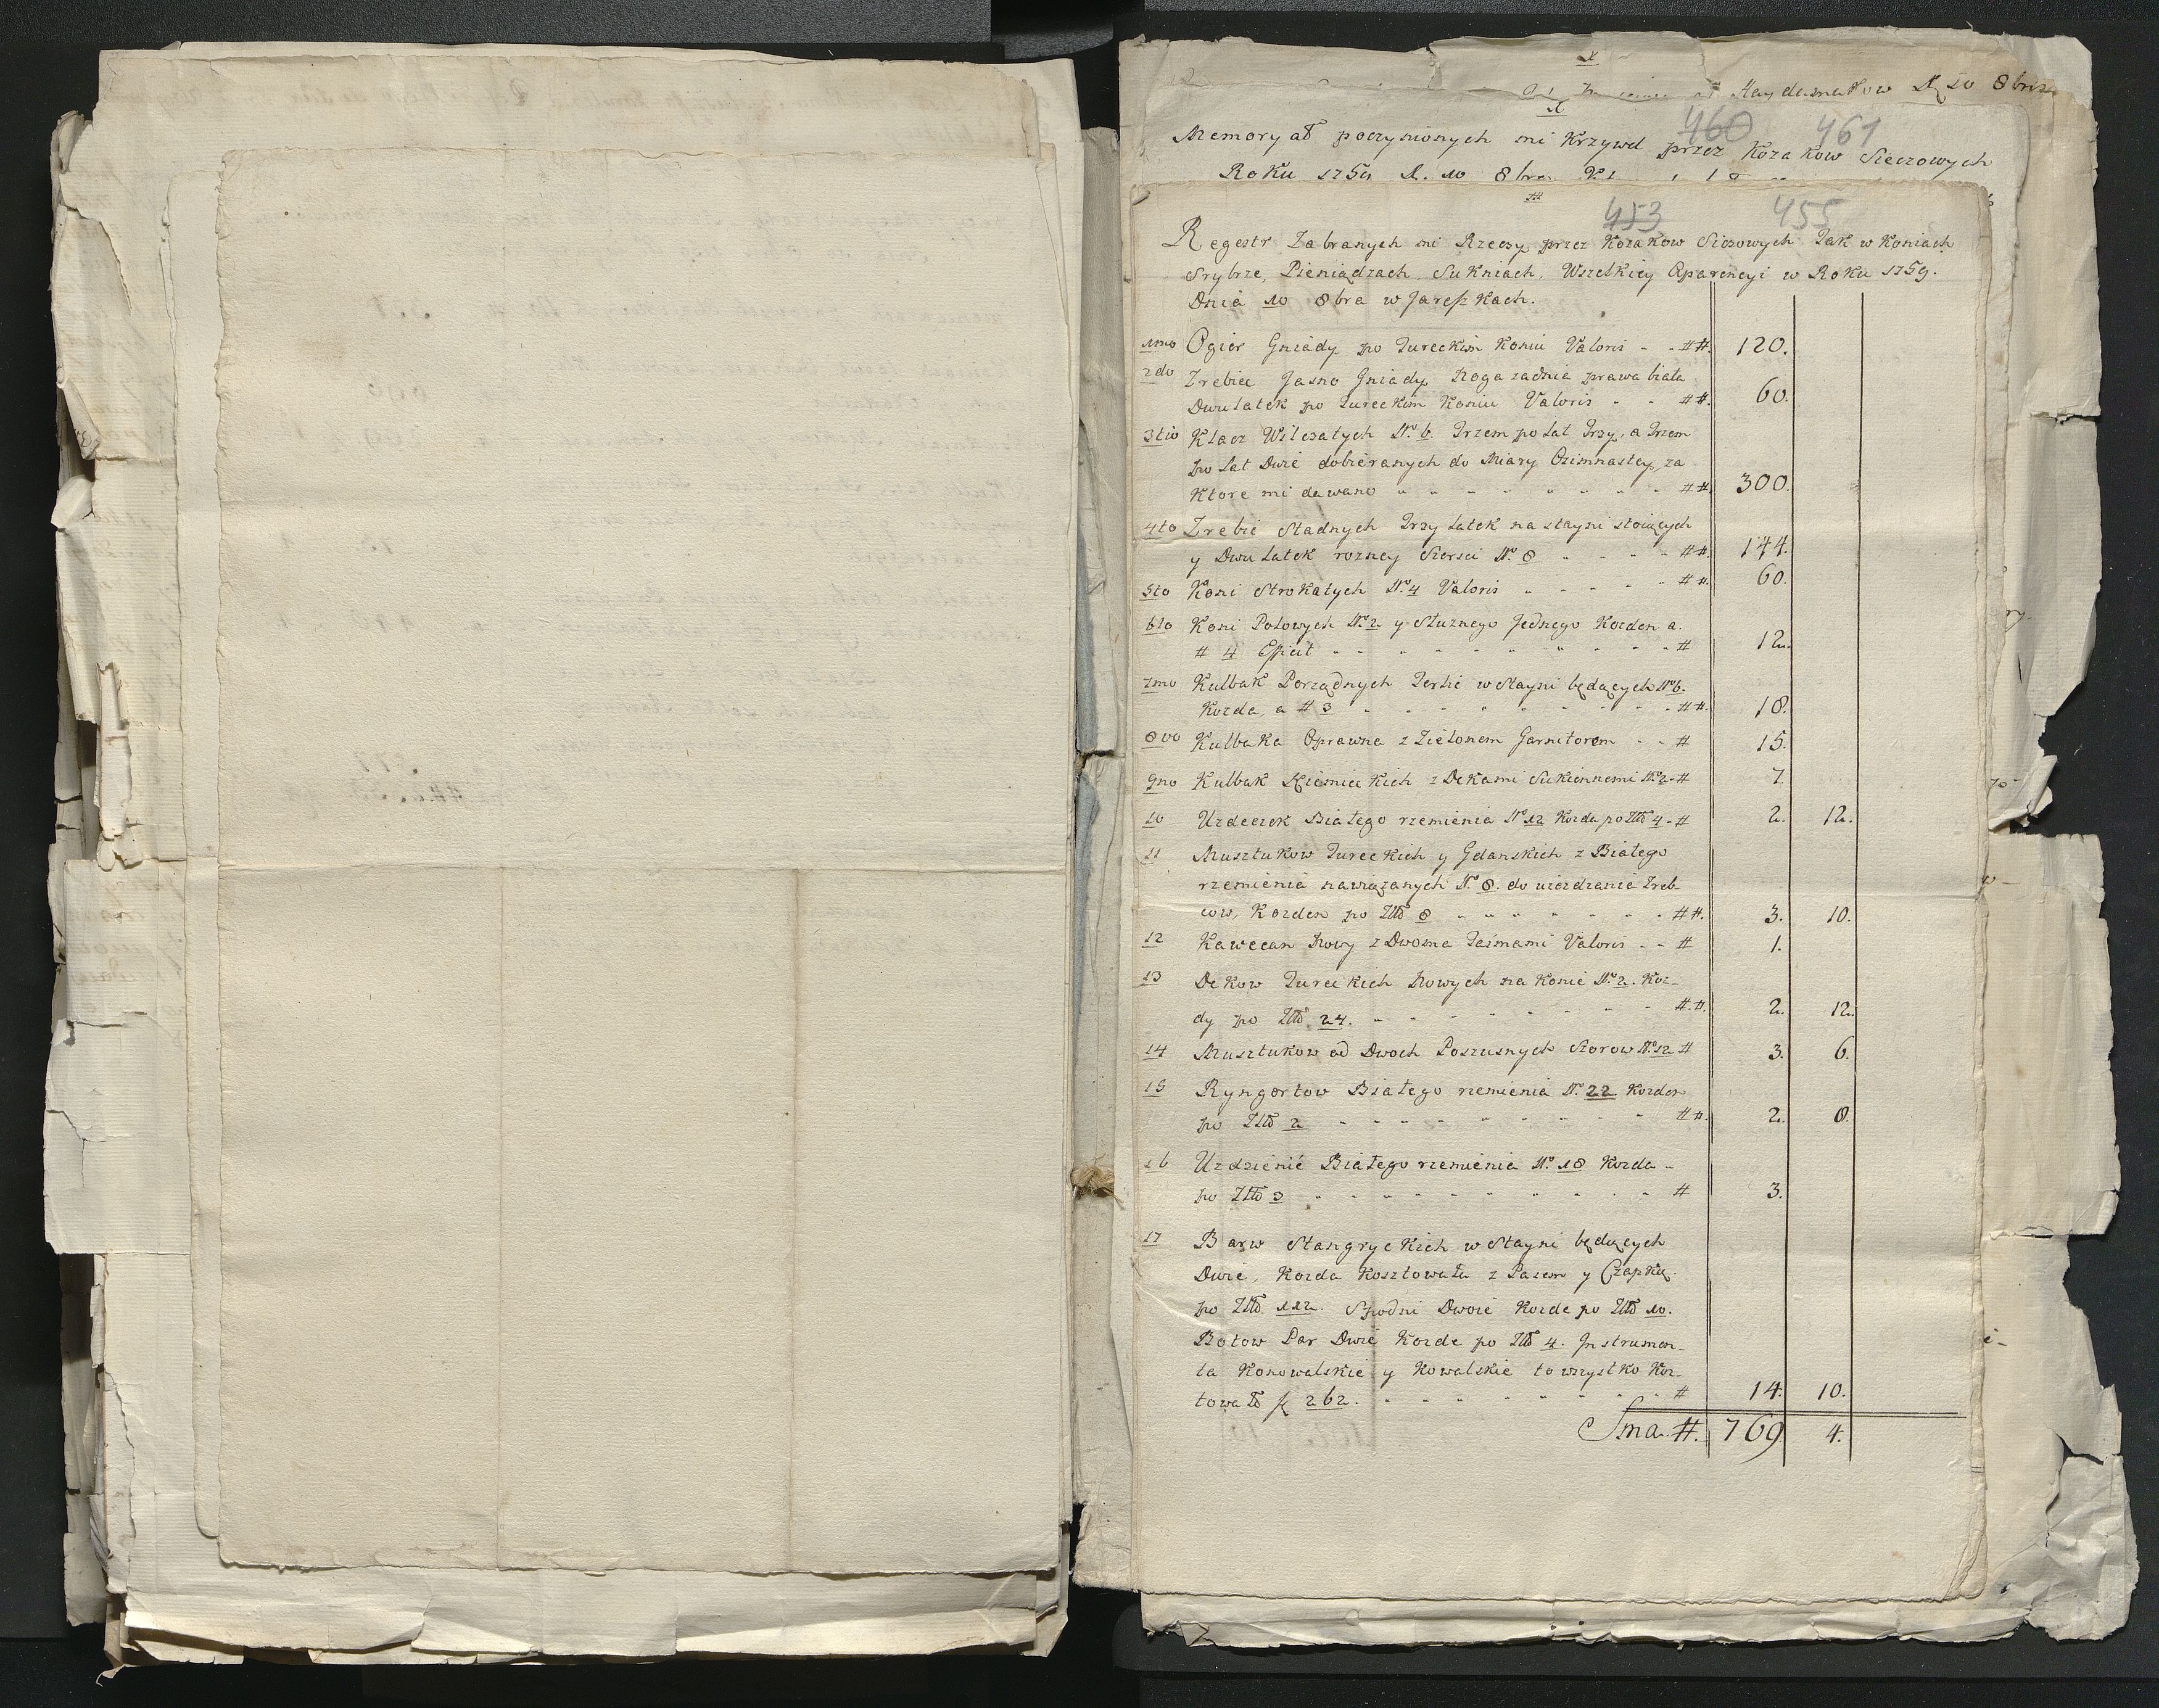 Haydamakow D. 10 8bris
460 461
Memoryał poczynionych mi Krzywd przez Kozakow Sieczowych
Roku 1759 D. 10 8bra
453 455
Regestr Zabranych mi Rzeczy przez Kozakow Siczowych Jak w Koniach
Srybrze, Pieniądzach Sukniach, Wszelkiey Aparencyi w Roku 1759.
Dnia 10 8bra w Jareszkach.
1mo Ogier Gniady po Tureckim Koniu Valoris - - ##. 120.
2do Zrebiec Jasno Gniady Noga zadnia prawa biała
Dwulatek po Tureckim Koniu Valoris - - ##. 60.
3tio Klacz Wilczatych Nº. 6. Trzem po Lat Trzy, a Trzem
po Lat Dwie dobieranych do Miary Ozimnastey, za
Ktore mi dawano ##. 300.
4to Zrebić Stadnych Trzylatek na stayni stoiących
y Dwulatek rozney Siersci Nº. 8 ##. 144.
5to Koni Strokatych Nº. 4 Valoris ##. 60.
6to Koni Połowych Nº. 2 y Stuznego Jednego Kozden a.
# 4 Efficit # 12.
7mo Kulbak Porządnych Terlic w Stayni będących Nº 6.
Kozda, a # 3 ##. 18.
8vo Kulbaka Oprawna z Zielonem Garnitorem - - # 15.
9no Kulbak Niemieckich z Dekami Sukiennemi Nº. 2 - # 7.
10 Uzdeczek Białego rzemienia Nº 12 Kozda po Złłt 4 - # 2. 12.
11 Musztukow Tureckich y Gdanskich z Białego
rzemienia nawiązanych Nº. 8. do uiezdzania Zreb-
cow, Kozden po Złłt 8 ##. 3. 10.
12 Kawecan Nowy z Dwoma Taśmami Valoris - - # 1.
13 Dekow Tureckich Nowych na Konie Nº. 2. Koz-
dy po Złłt 24. #.#. 2. 12.
14 Musztukow od Dwoch Poszusnych Szorow Nº. 12 # 3. 6.
15 Ryngortow Białego rzemienia Nº. 22 Kozden
po Złłt 2 ##. 2. 8.
16 Uzdzienić Białego rzemienia Nº. 18 Kozda -
po Złłt 3 # 3.
17 Barw Stangryckich w Stayni będących
Dwie, Kozda Kosztowała z Pasem y Czapką
po Złłt 112. Spodni Dwoie Kozde po Złłt 10.
Botow Par Dwie Kozde po Złłt 4. Jnstrumen-
ta Konowalskie y Kowalskie to wszystko Kos-
towało f 262. # 14. 10.
Sma. #. 769. 4.